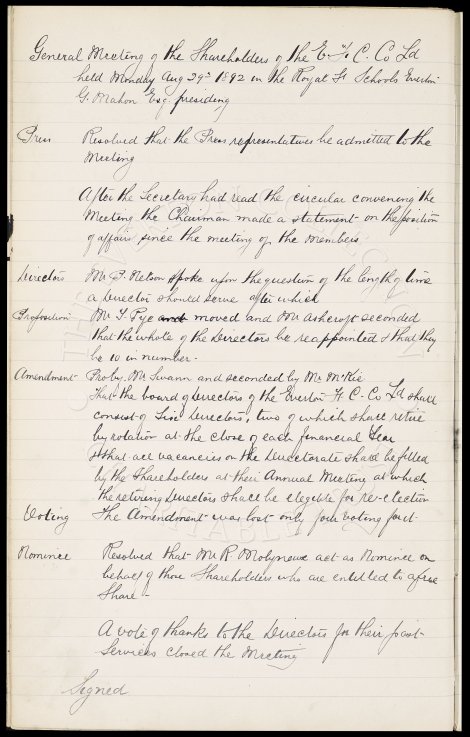 General Meeting of the Shareholders of the E. F. C. Co Ld
held Monday Aug 29th 1892 in the Royal St Schools Everton
G. Mahon Esq. presiding
Press Resolved that the Press representatives be admitted to the
Meeting
After the Secretary had read the circular convening the
Meeting the Chairman made a statement on the position
of affairs since the meeting of the Members
Directors Mr Nelson spoke upon the question of the length of time
a Director should serve after which
Proposition Mr Pye and moved and Mr Ashcroft seconded
that the whole of the Directors be reappointed & that they
be 10 in number.
Amendment Pro by Mr Swann and seconded by Mr McKie
That the board of Directors of the Everton F. C. Co Ld shall
consist of Six Directors, two of which shall retire
by rotation at the close of each financial Year
& that all vacancies on the Directorate shall be filled
by the Shareholders at their Annual Meeting at which
the retiring Directors shall be elegible for re-election
Voting The Amendment was lost only four voting for it
Nominee Resolved that Mr R. Molyneux act as Nominee on
behalf of those Shareholders who are entitled to a free
Share
A vote of thanks to the Directors for their past
Services closed the Meeting
Signed